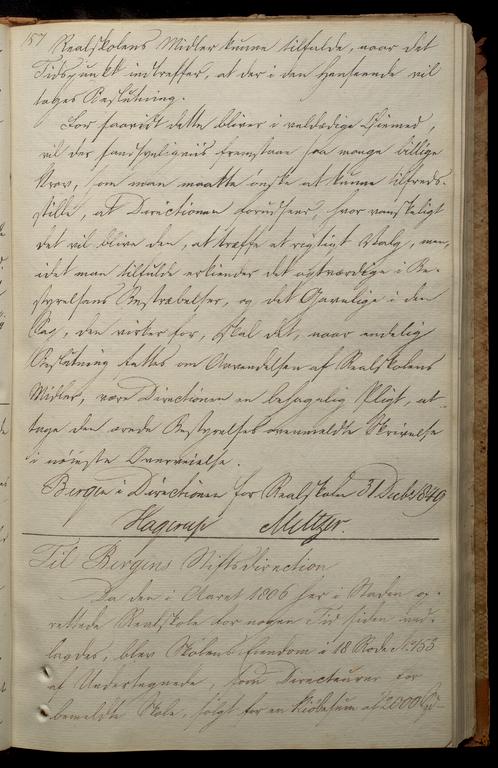 157
Realskolens Midler kunne tilfalde, naar det
Tidspunkt indtræffer, at der i den Henseende vil
tages Beslutning.
For saavidt dette bliver i veldædige Øiemed,
vil der sandsynligviis fremstaae saa mange billige
Krav, som man maatte ønske at kunne tilfreds-
stille, at Directionen forudseer, hvor vanskeligt
det vil blive den, at træffe et rigtigt Valg, men,
idet man tilfulde erkiender det agtværdige i Be-
styrelsens Bestræbelser, og det Gavnlige i den
Sag, den virker for, skal det, naar endelig
Beslutning fattes om Anvendelsen af Realskolens
Midler, være Directionen en behagelig Pligt, at
tage den ærede Bestyrelses ovenmeldte Skrivelse
i nøieste Overveielse.
Bergen i Directionen for Realskolen 31 Decbr 1849
Hagerup Meltzer.
Til Bergens Stiftsdirection
Da den i Aaret 1806 her i Staden op-
rettede Realskole for nogen Tid siden ned-
lagdes, blev Skolens Eiendom i 18 Rode No 153
af Undertegnede, som Directeurer for
bemeldte Skole, solgt for en Kiøbesum af 2000